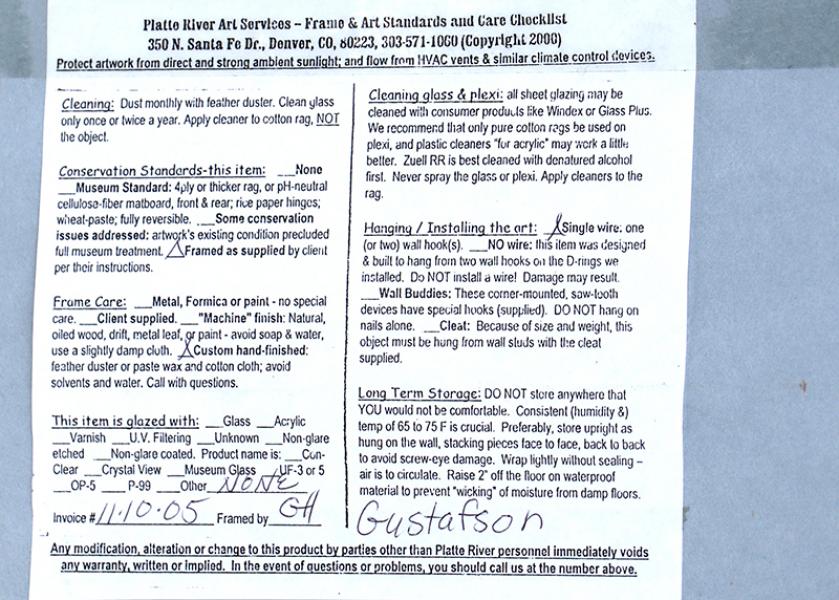 Platte River Art Services – Frame & Art Standards and Care Checklist
350 N. Santa Fe Dr., Denver, CO, 80223, 303-571-1060 (Copyright 2000)
Protect artwork from direct and strong ambient sunlight; and flow from HVAC vents & similar climate control devices.
Cleaning: Dust monthly with feather duster. Clean glass
only once or twice a year. Apply cleaner to cotton rag, NOT
the object.
Conservation Standards-this item: ___None
___Museum Standard: 4ply or thicker rag, or pH-neutral
cellulose-fiber matboard, front & rear; rice paper hinges;
wheat-paste; fully reversible. ___Some conservation
issues addressed: artwork's existing condition precluded
full museum treatment. X Framed as supplied by client
per their instructions.
Frame Care: ___Metal, Formica or paint - no special
care. ___Client supplied. ___"Machine" finish: Natural,
oiled wood, drift, metal leaf, or paint - avoid soap & water,
use a slightly damp cloth. X Custom hand-finished:
feather duster or paste wax and cotton cloth; avoid
solvents and water. Call with questions.
This item is glazed with: ___Glass ___Acrylic
___Varnish ___U.V. Filtering ___Unknown ___Non-glare
etched ___Non-glare coated. Product name is: ___Con-
Clear ___Crystal View ___Museum Glass ___UF-3 or 5
___OP-5 ___P-99 ___Other NONE
Invoice # 11.10.05 Framed by GH
Cleaning glass & plexi: all sheet glazing may be
cleaned with consumer products like Windex or Glass Plus.
We recommend that only pure cotton rags be used on
plexi, and plastic cleaners "for acrylic" may work a little
better. Zuell RR is best cleaned with denatured alcohol
first. Never spray the glass or plexi. Apply cleaners to the
rag.
Hanging / Installing the art: X Single wire: one
(or two) wall hook(s). ___NO wire: this item was designed
& built to hang from two wall hooks on the D-rings we
installed. Do NOT install a wire! Damage may result.
___Wall Buddies: These corner-mounted, saw-tooth
devices have special hooks (supplied). DO NOT hang on
nails alone. ___Cleat: Because of size and weight, this
object must be hung from wall studs with the cleat
supplied.
Long Term Storage: DO NOT store anywhere that
YOU would not be comfortable. Consistent (humidity &)
temp of 65 to 75 F is crucial. Preferably, store upright as
hung on the wall, stacking pieces face to face, back to back
to avoid screw-eye damage. Wrap lightly without sealing –
air is to circulate. Raise 2" off the floor on waterproof
material to prevent "wicking" of moisture from damp floors.
Gustafson
Any modification, alteration or change to this product by parties other than Platte River personnel immediately voids
any warranty, written or implied. In the event of questions or problems, you should call us at the number above.